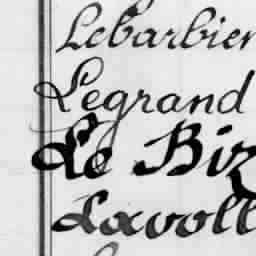 Lebarbier
Legrand
Le Biz
Lavoll